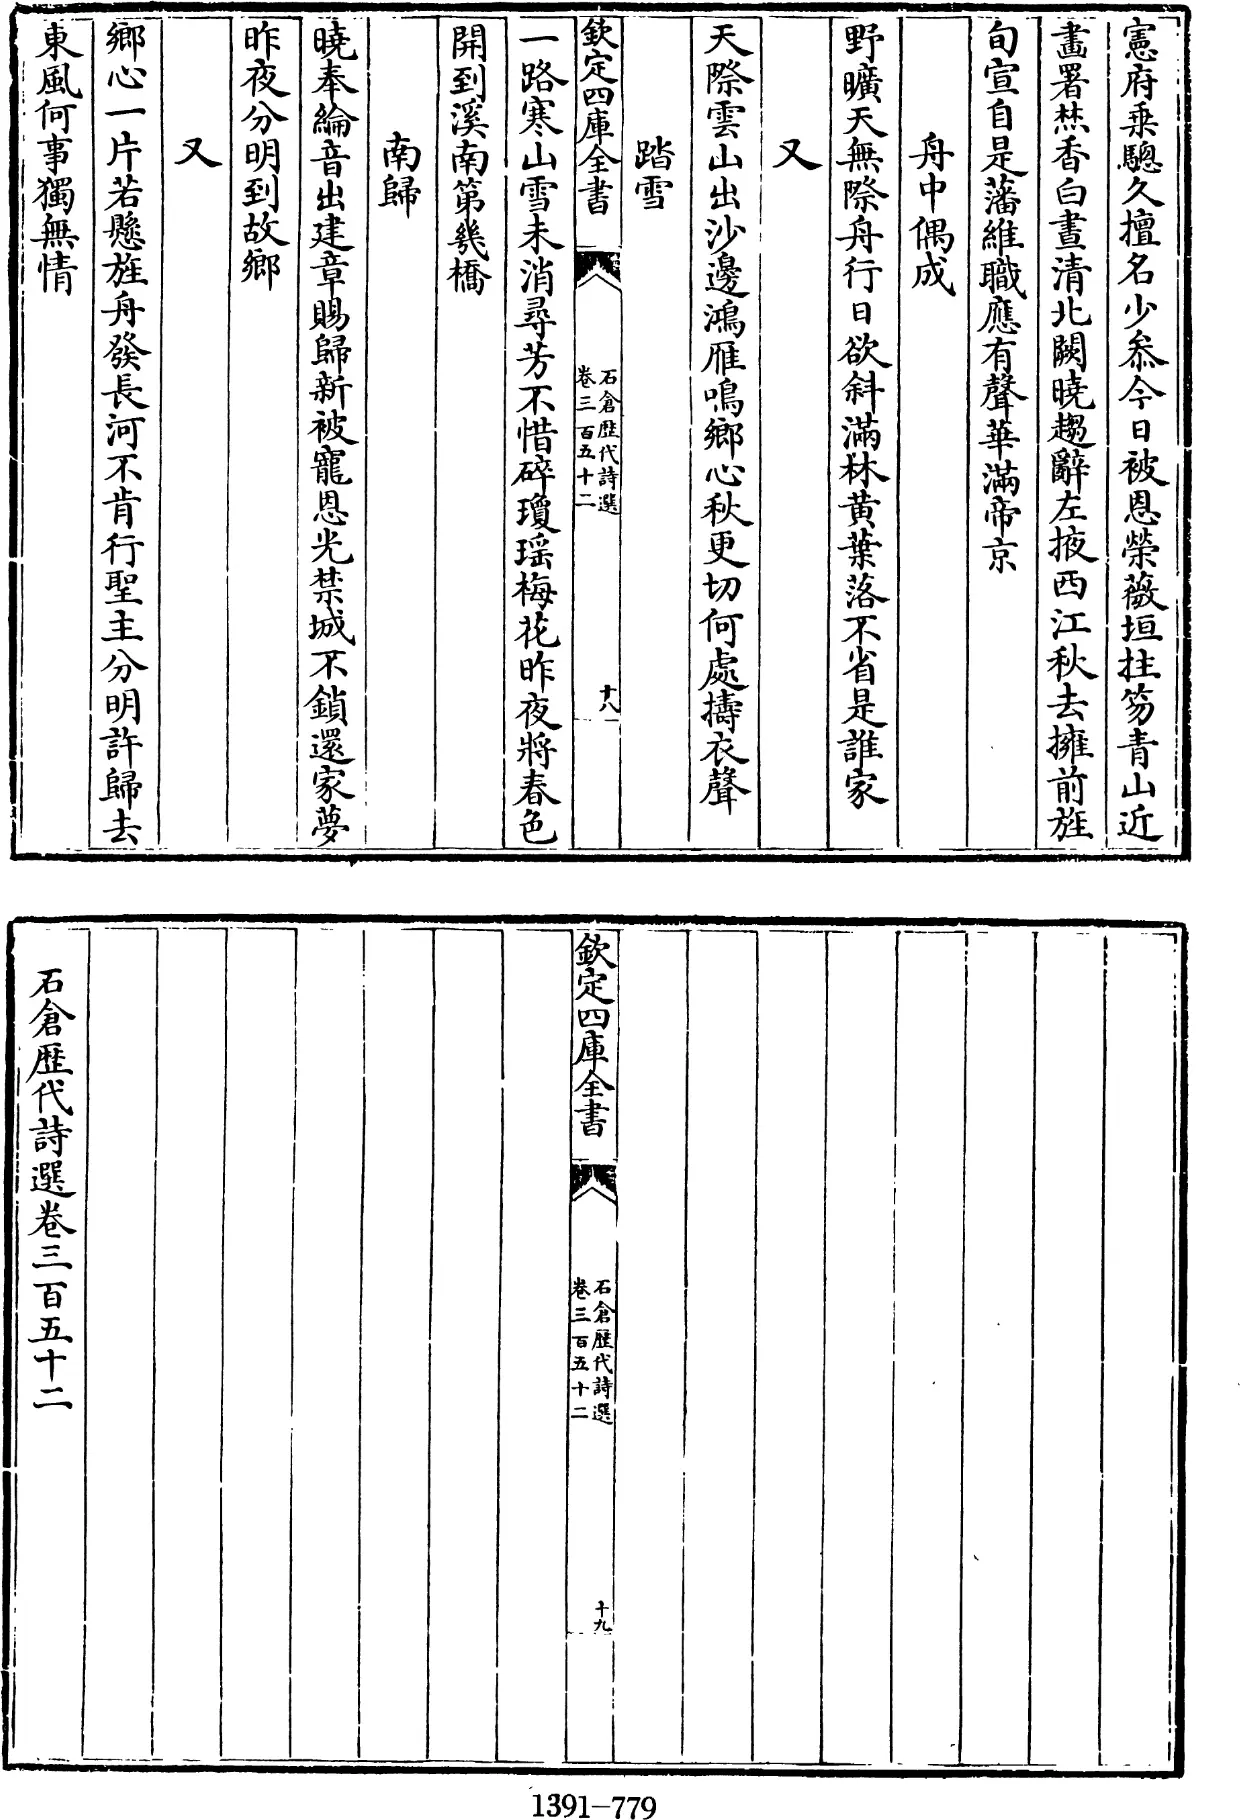 憲府乗驄久擅名少叅今日被恩榮薇垣拄笏青山近
畵署焚香白晝清北闕曉趨辭左掖西江秋去擁前旌
旬宣自是藩維職應有聲華滿帝京
舟中偶成
野曠天無際舟行日欲斜滿林黄葉落不省是誰家
又
天際雲山出沙邊鴻雁鳴鄉心秋更切何處擣衣聲
踏雪
欽定四庫全書
石倉歷代詩選
卷三百五十二
十八
一路寒山雪未消尋芳不惜碎瓊瑶梅花昨夜將春色
開到溪南第幾橋
南歸
曉奉綸音出建章賜歸新被寵恩光禁城不鎖還家夢
昨夜分明到故鄉
又
鄉心一片若懸旌舟發長河不肯行聖主分明許歸去
東風何事獨無情
欽定四庫全書
石倉歷代詩選
卷三百五十二
十九
石倉歷代詩選卷三百五十二
1391-779